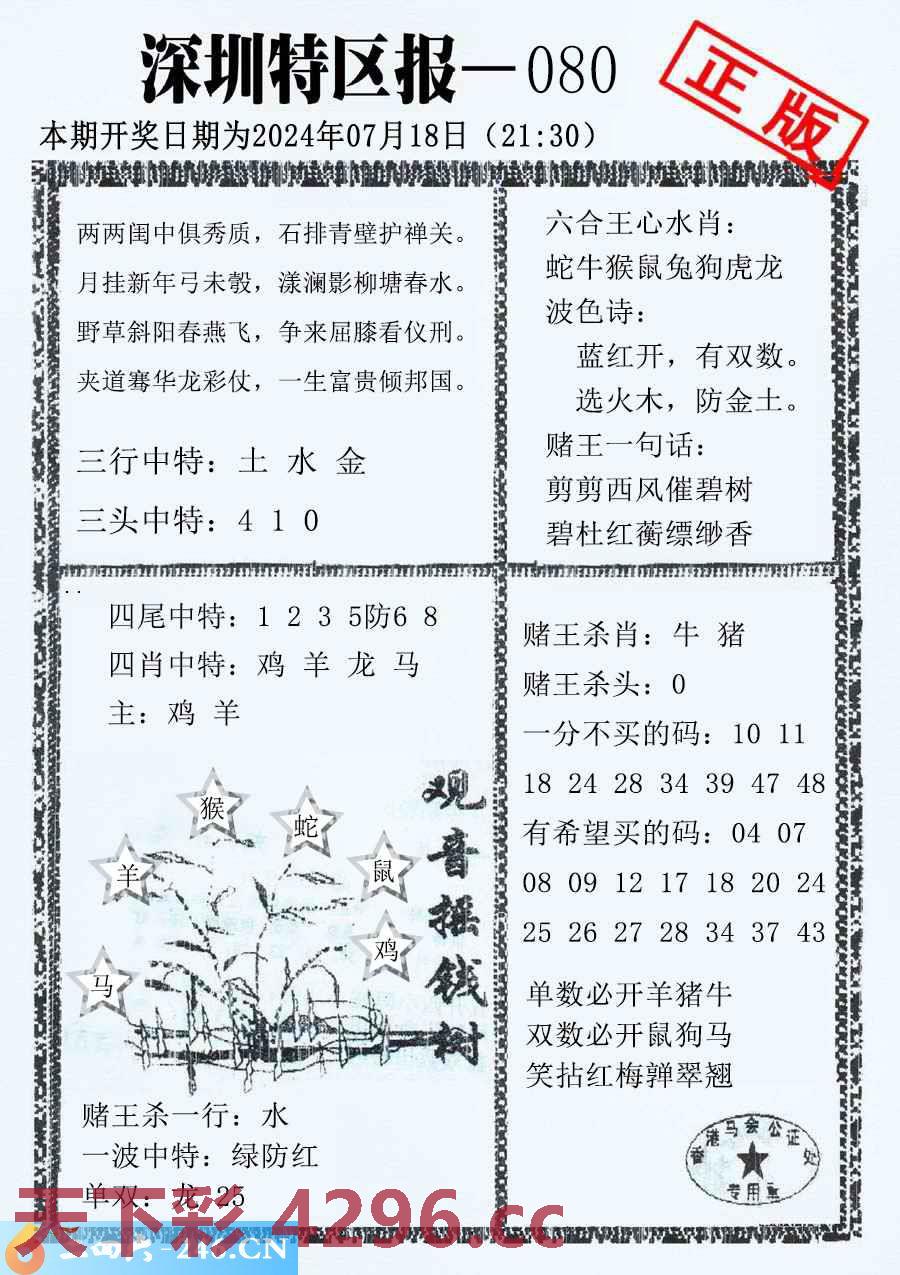 深圳特区报—080
正版
本期开奖日期为2024年07月18日（21:30）
两两闺中俱秀质，石排青壁护禅关。
月挂新年弓未彀，漾澜影柳塘春水。
野草斜阳春燕飞，争来屈膝看仪刑。
夹道骞华龙彩仗，一生富贵倾邦国。
三行中特：土 水 金
三头中特：4 1 0
六合王心水肖：
蛇牛猴鼠兔狗虎龙
波色诗：
蓝红开，有双数。
选火木，防金土。
赌王一句话：
剪剪西风催碧树
碧杜红蘅缥缈香
四尾中特：1 2 3 5防6 8
四肖中特：鸡 羊 龙 马
主：鸡 羊
猴
蛇
羊
鼠
鸡
马
观音摇钱树
赌王杀一行：水
一波中特：绿防红
单双：龙 25
赌王杀肖：牛 猪
赌王杀头：0
一分不买的码：10 11
18 24 28 34 39 47 48
有希望买的码：04 07
08 09 12 17 18 20 24
25 26 27 28 34 37 43
单数必开羊猪牛
双数必开鼠狗马
笑拈红梅亸翠翘
香港马会公证处
专用章
天下彩 4296.cc
246.CN